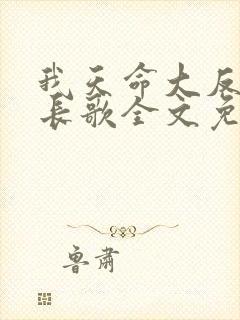 我天命大反
长歌全文免
鲁肃